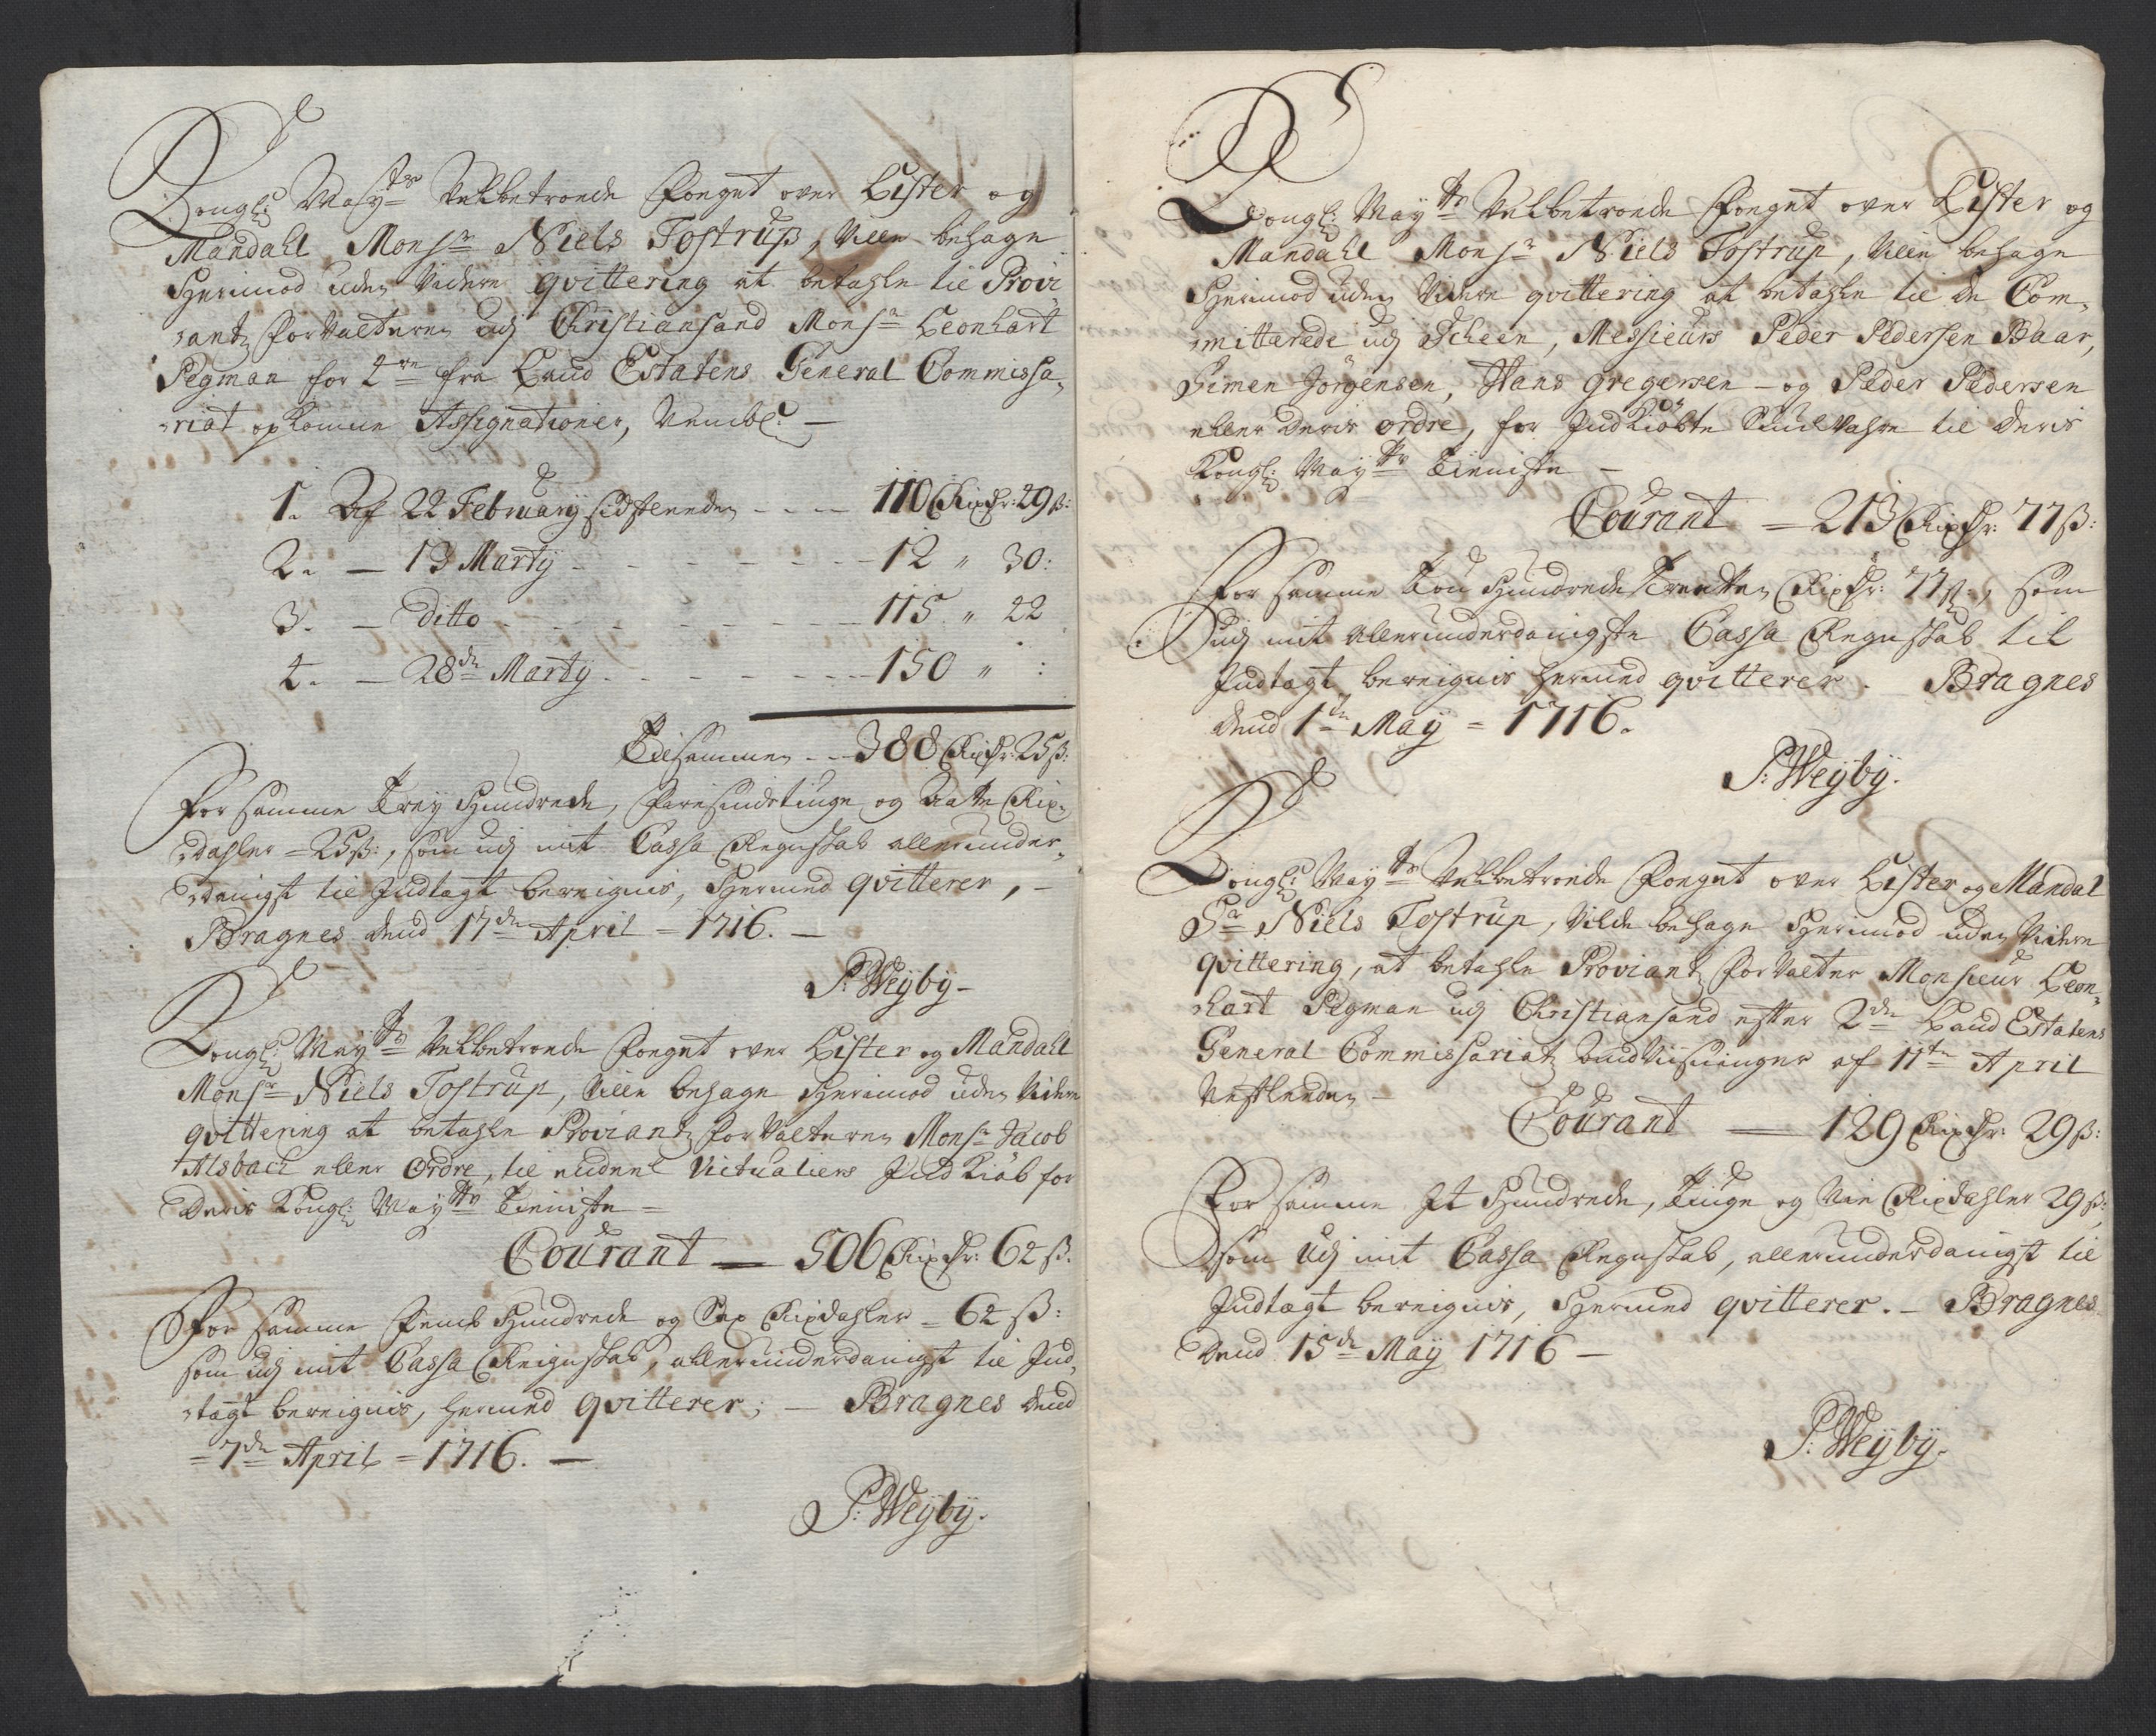 Kongl: May:ts Velbetroede Foeget over Lister og
Mandahl Monsr Niels Tostrup, Ville behage
Herimod uden Videre qvittering at betahle til Provi
antz Forvalteren udj Christiansand Monsr Leonhart
Pegman for fra Land Etatens General Commissa-
riat opkomne Assignationer, Nembl:
1. Af 22 February sidstleeden - - - 110 Rixdr: 29 ß:
2. — 13 Marty - - - 12 " 30:
3. — Ditto - - - 115 " 22
4. — 28de Marty - - - 150 " :
Tilsammen - - 388 Rixdr: 25 ß:
For samme Trey Hundrede, Firesindstiuge og Aatte Rix-
dahler = 25 ß:, som udj mit Cassa Regnskab allerunder-
danigst til Indtægt bereignis, Hermed qvitterer, -
Bragnes dend 17de April = 1716. —
P: Weyby -
Kongl: May:ts Velbetroede Foeget over Lister og Mandahl
Monsr Niels Tostrup, Ville behage Herimod uden Videre
qvittering at betahle Proviantz Forvalteren Monsr Jacob
Alsbach eller Ordre, til endeel Victualiers Indkiøb for
Deris Kongl: May:ts Tieniste =
Courant — 506 Rixdr: 62 ß.
For samme Femb Hundrede og Sex Rixdahler = 62 ß:
som udj mit Cassa Reignskab, allerunderdanigst til Ind-
tægt bereignis, hermed qvitterer; — Bragnes dend
= 7de April = 1716. —
P: Weyby.
Kongl: May:ts Velbetroede Foeget over Lister og
Mandahl Monsr Niels Tostrup, Ville behage
Herimod uden Videre qvittering at betahle til de Com-
mitterede udj Scheen, Messieurs Peder Pedersen Baar,
Simen Jörgensen, Hans Gregersen - og Peder Pedersen
eller deris ordre, for Indkiøbte til deris
Kongl: May:ts Tieniste —
Courant = 213 Rixdr: 77 ß:
For samme Tou Hundrede Tretten Rixdr: 77 ß:, som
udj mit Allerunderdanigste Cassa Regnskab til
Indtægt bereignis hermed qvitterer. Bragnes
dend 1te May = 1716.
P: Weyby.
Kongl: May:ts Velbetroede Foeget over Lister og Mandal
Sr Niels Tostrup, Vilde behage Herimod uden Videre
qvittering, at betahle Proviantz Forvalter Monsieur Leon-
hart Pegman udj Christiansand efter 2de Land Etatens
General Commissariatz Anvisninger af 11te April
Nestleeden -
Courant — 129 Rixdr: 29 ß:
For samme It Hundrede, Tiuge og Nie Rixdahler 29 ß:,
som Udj mit Cassa Regnskab, allerunderdanigst til
Indtægt bereignis, Hermed qvitterer. - Bragnes
Dend 15de May 1716 —
P: Weyby.